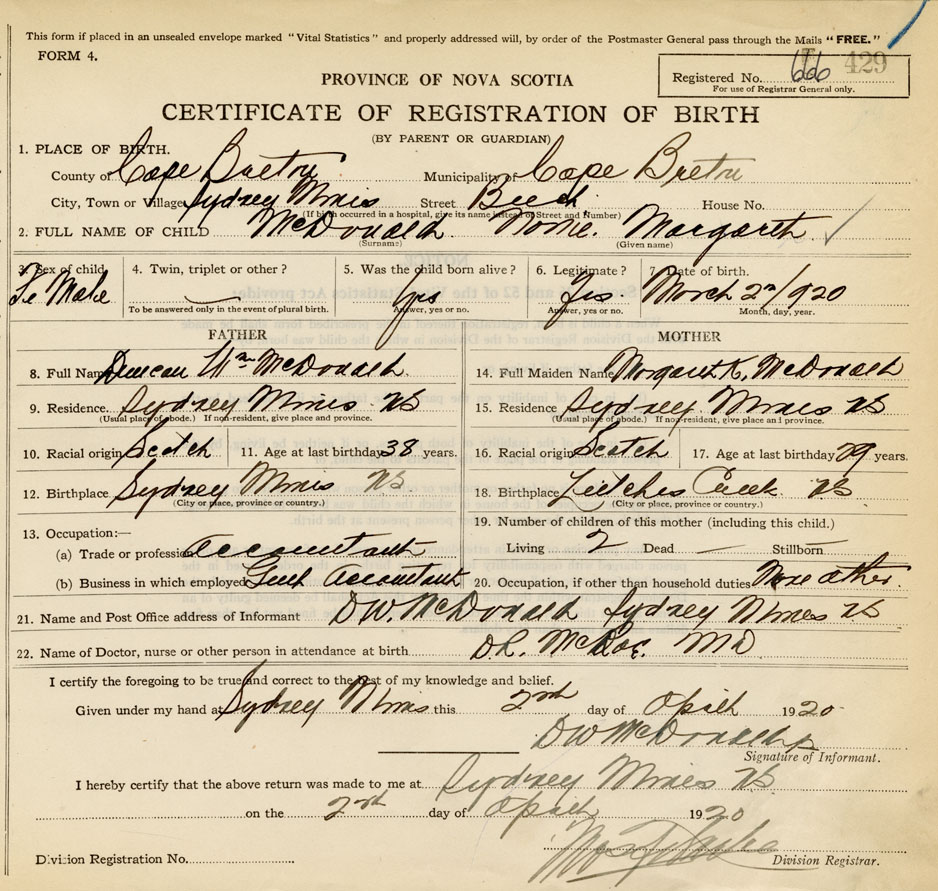 This form if placed in an unsealed envelope marked "Vital Statistics" and properly addressed will, by order of the Postmaster General pass through the Mails "FREE."
FORM 4.
Registered No. 666 429
For use of Registrar General only.
PROVINCE OF NOVA SCOTIA
CERTIFICATE OF REGISTRATION OF BIRTH
(BY PARENT OR GUARDIAN)
1. PLACE OF BIRTH.
County of Cape Breton Municipality of Cape Breton
City, Town or Village Sydney Mines Street House No.
(If birth occurred in a hospital, give its name instead of Street and Number)
2. FULL NAME OF CHILD McDonald Margaret
(Surname) (Given name)
3. Sex of child 4. Twin, triplet or other? 5. Was the child born alive? 6. Legitimate? 7. Date of birth.
Fe Male — Yes Yes. March 2nd 1920
To be answered only in the event of plural birth. Answer, yes or no. Answer, yes or no. Month, day, year.
FATHER MOTHER
8. Full Name Duncan Wm McDonald 14. Full Maiden Name Margaret K. McDonald
9. Residence Sydney Mines NS 15. Residence Sydney Mines NS
(Usual place of abode.) If non-resident, give place and province. (Usual place of abode.) If non-resident, give place and province.
10. Racial origin Scotch 11. Age at last birthday 38 years. 16. Racial origin Scotch 17. Age at last birthday 29 years.
12. Birthplace Sydney Mines NS 18. Birthplace Leitches Creek NS
(City or place, province or country.) (City or place, province or country.)
13. Occupation:— 19. Number of children of this mother (including this child.)
(a) Trade or profession Accountant Living 2 Dead — Stillborn —
(b) Business in which employed Accountant 20. Occupation, if other than household duties None other.
21. Name and Post Office address of Informant D W. McDonald Sydney Mines NS
22. Name of Doctor, nurse or other person in attendance at birth MD
I certify the foregoing to be true and correct to the best of my knowledge and belief.
Given under my hand at Sydney Mines this 2nd day of April 1920
D W McDonald
Signature of Informant.
I hereby certify that the above return was made to me at Sydney Mines NS
on the 2nd day of April 1920
Division Registration No. Division Registrar.